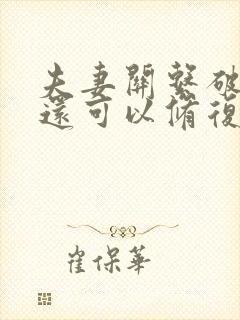 夫妻關繫破
還可以脩復
崔保華